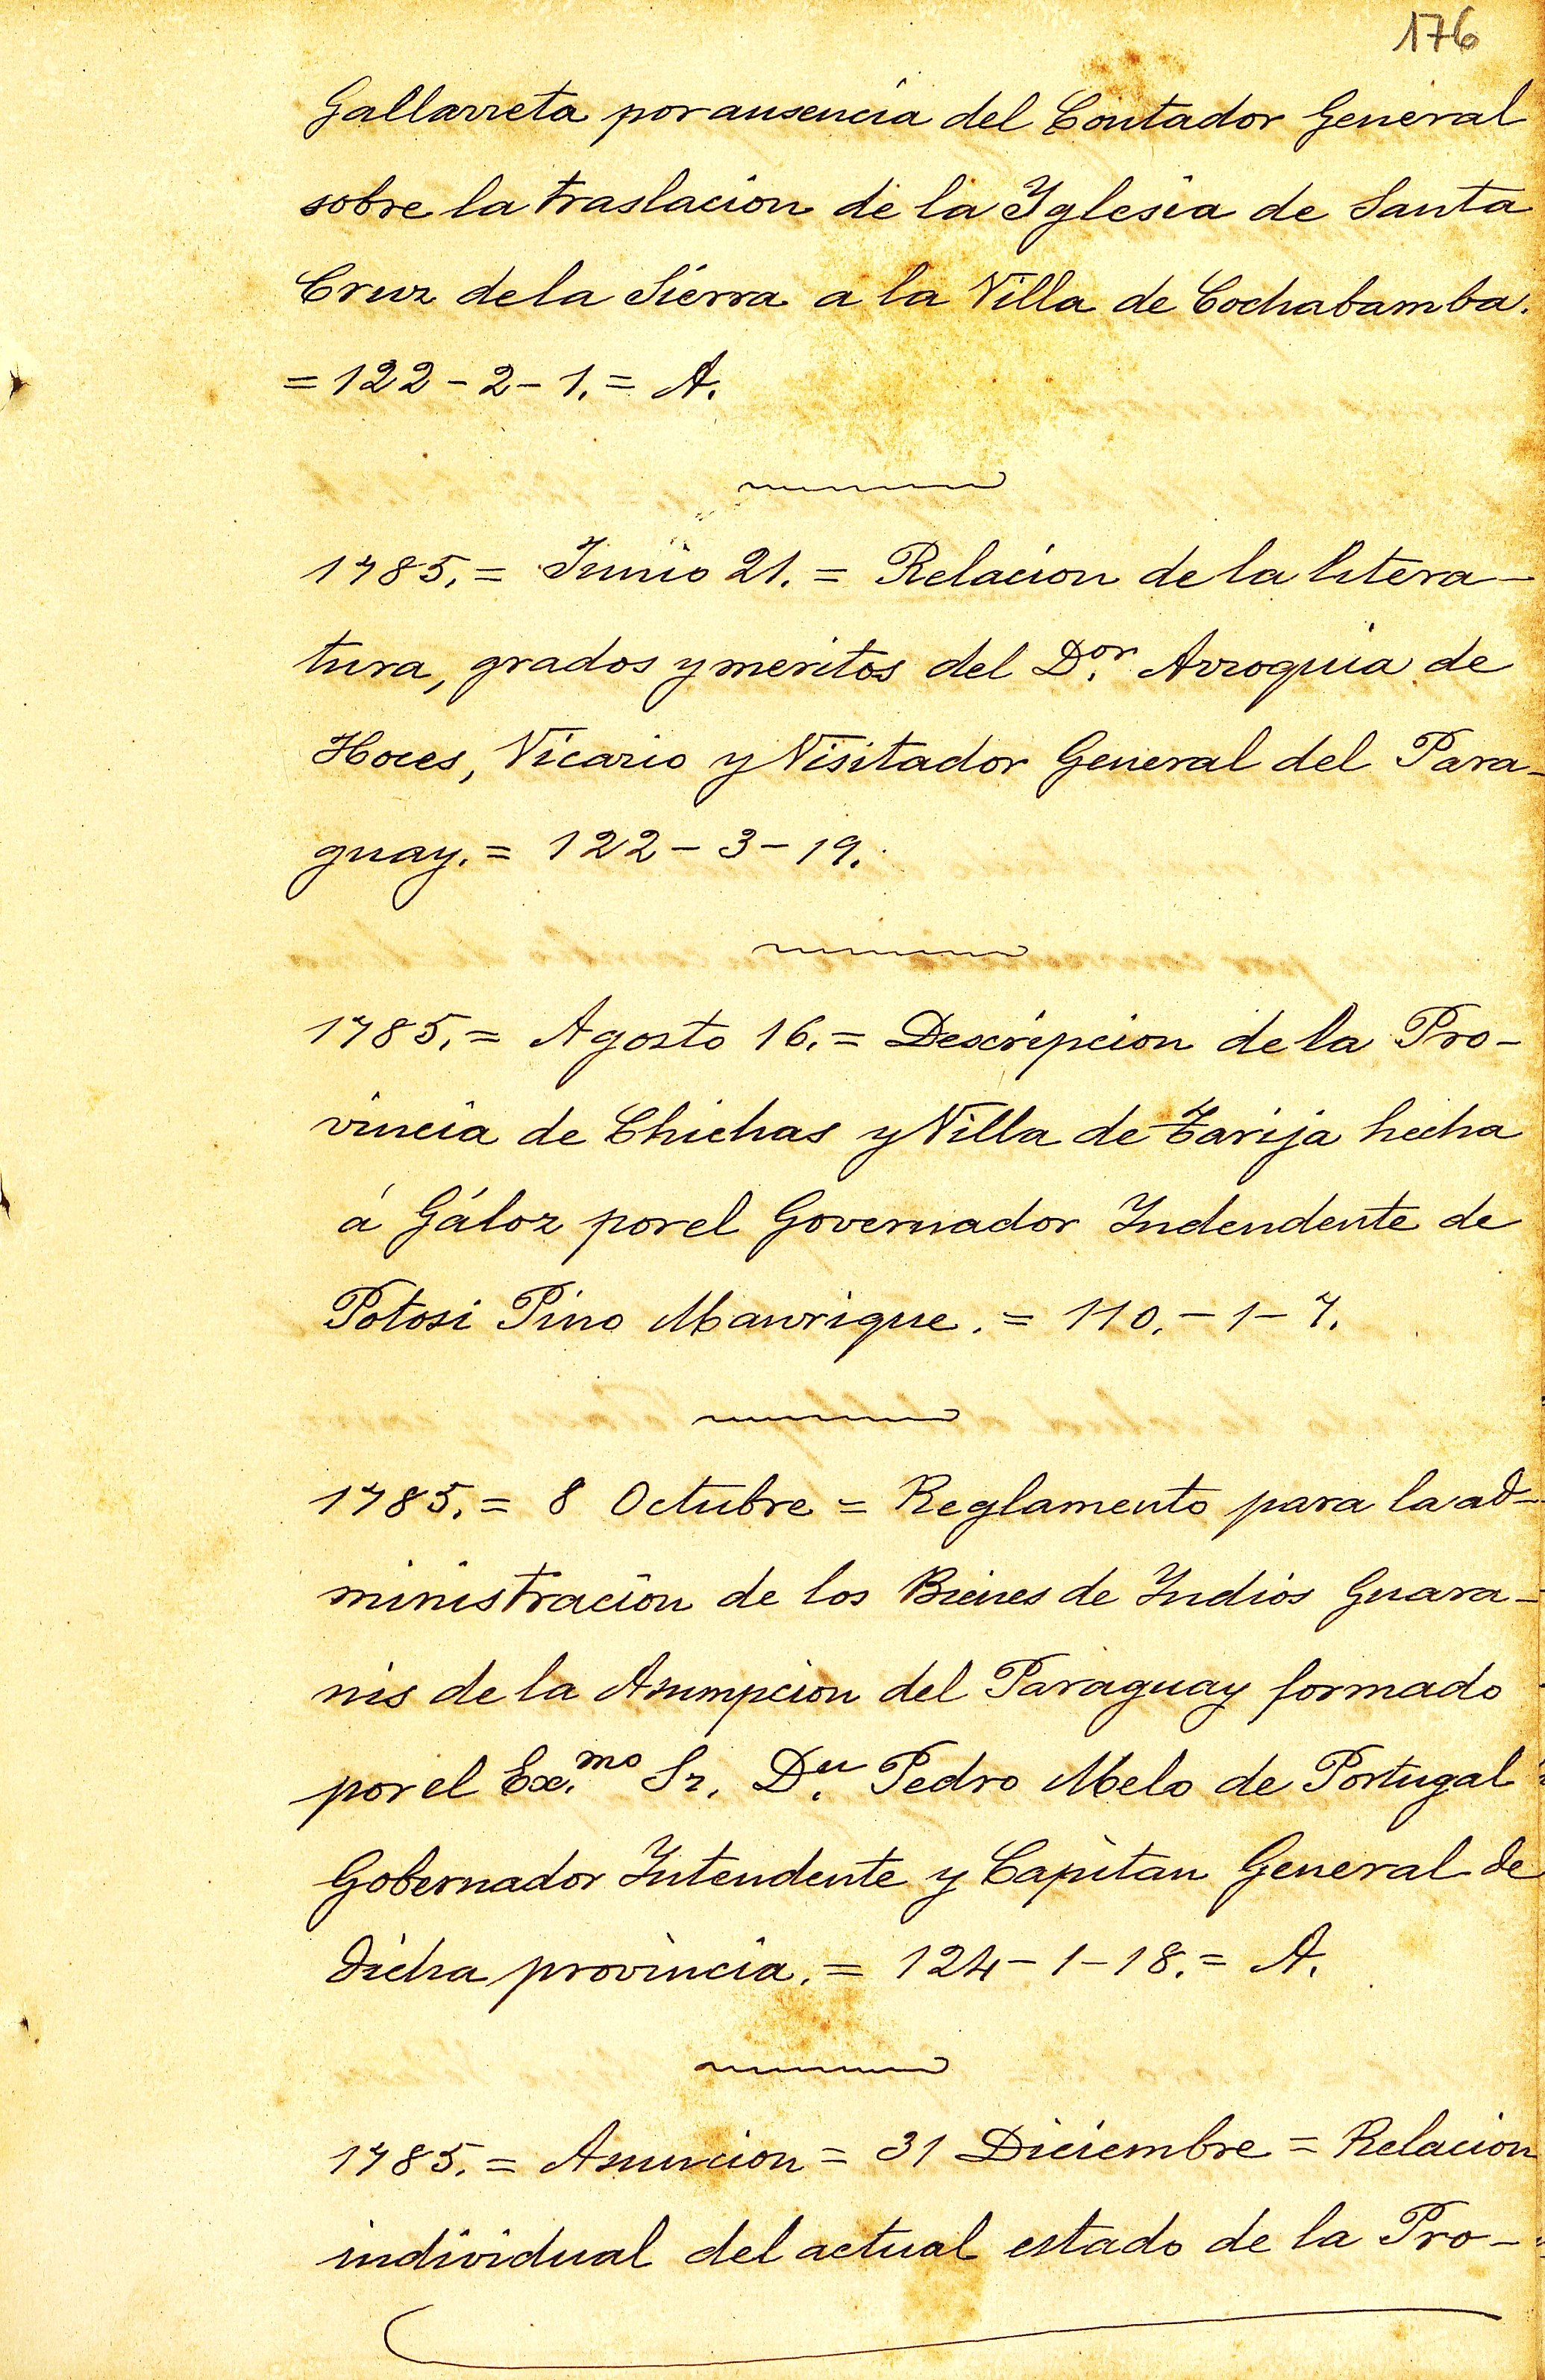 176
Gallarreta por ausencia del Contador General
sobre la traslacion de la Yglesia de Santa
Cruz de la Sierra a la Villa de Cochabamba.
= 122 - 2 - 1. = A.
1785. = Junio 21. = Relacion de la litera-
tura, grados y meritos del D.or Arroquia de
Hoces, Vicario y Visitador General del Para-
guay. = 122 - 3 - 19.
1785. = Agosto 16. = Descripcion de la Pro-
vincia de Chichas y Villa de Tarija hecha
á Gáloz por el Governador Yndendente de
Potosi Pino Manrique. = 110. - 1 - 7.
1785. = 8 Octubre = Reglamento para la ad-
ministracion de los Bienes de Yndios Guara-
nis de la Asumpcion del Paraguay formado
por el Ex.mo Sr. D.n Pedro Melo de Portugal
Gobernador Yntendente y Capitan General de
dicha provincia. = 124 - 1 - 18. = A.
1785. = Asuncion = 31 Diciembre = Relacion
individual del actual estado de la Pro-